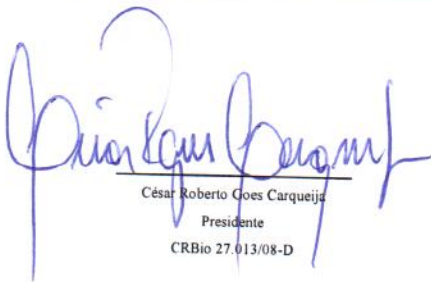 César Roberto Goes Carqueija
Presidente
CRBio 27.013/08-D